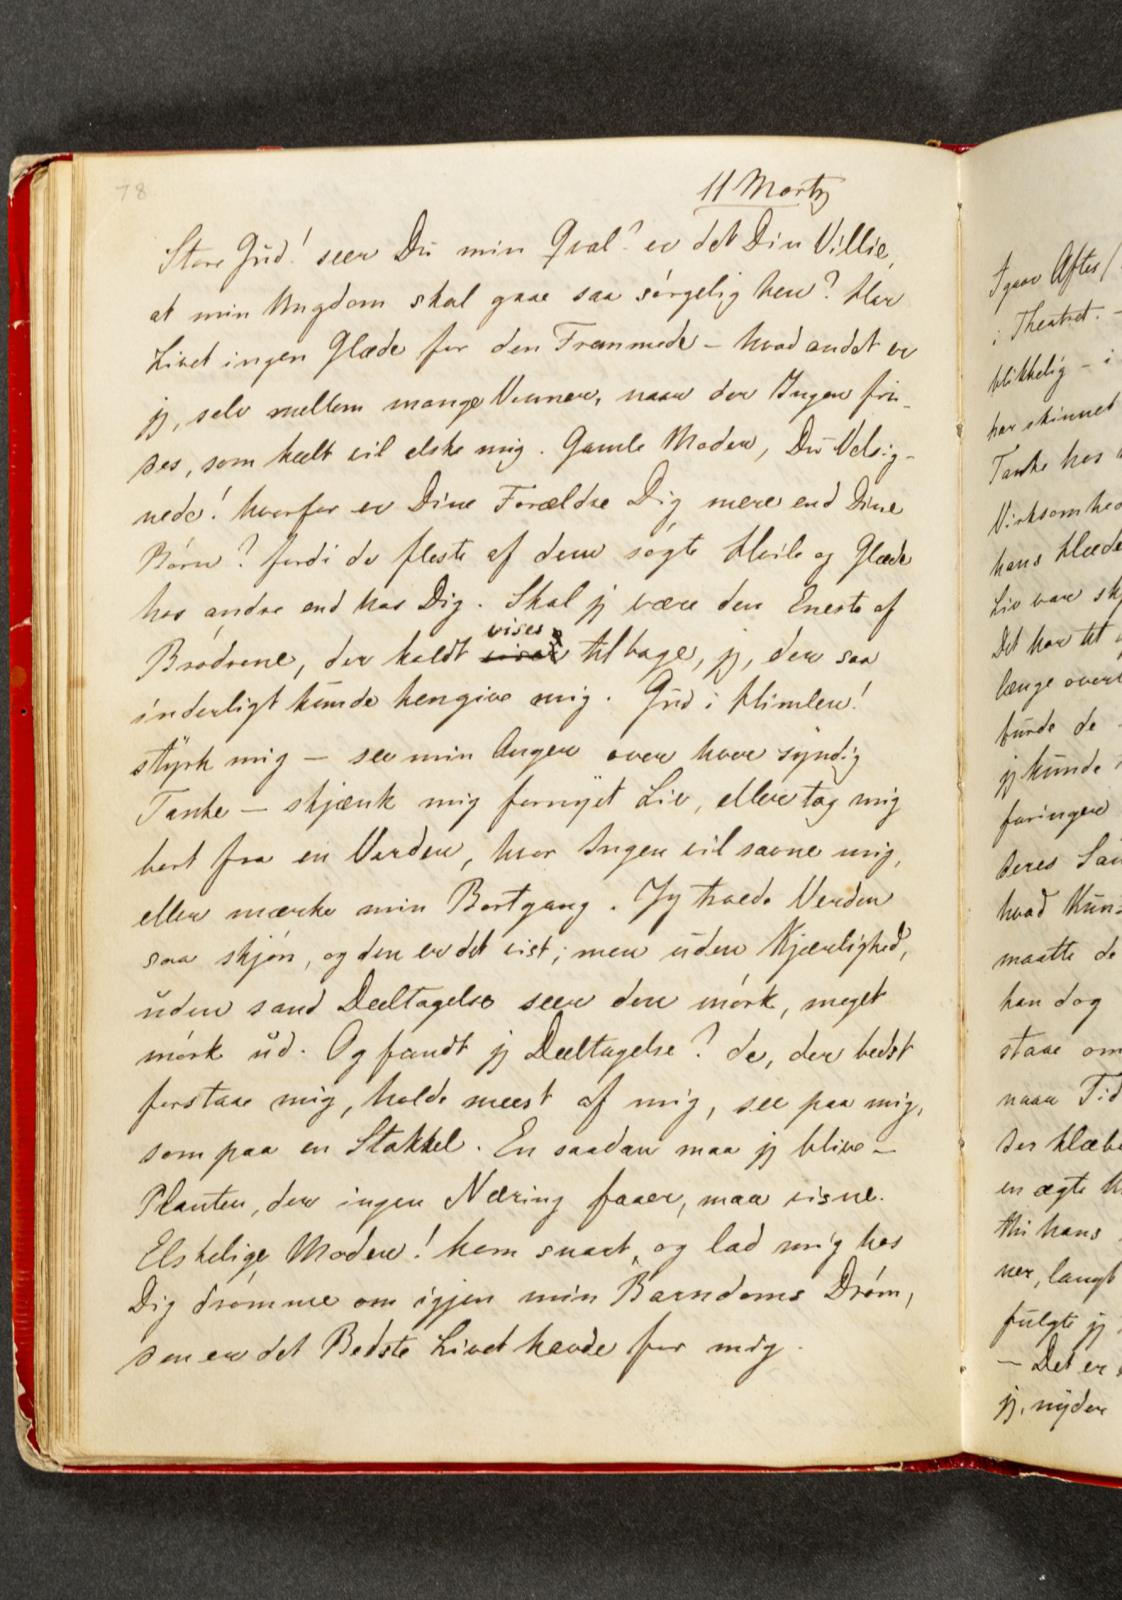 78
11 Marts
Store Gud! seer Du min Qval? er det Din Villie,
at min Ungdom skal gaae saa sørgelig hen? Har
Livet ingen Glæde for den Fremmede – hvad andet er
jeg, selv mellem mange Venner, naar der Ingen fin-
des, som heelt vil elske mig. Gamle Moder, Du Velsig-
nede! hvorfor er Dine Forældre Dig mere end Dine
Børn? fordi de fleste af dem søgte Hvile og Glæde
hos andre end hos Dig. Skal jeg være den Eneste af
vises
Brødrene, der koldt viser tilbage, jeg, der saa
inderligt kunde hengive mig. Gud i Himlen!
styrk mig – see min Anger over hver syndig
Tanke – skjænk mig fornyet Liv, eller tag mig
bort fra en Verden, hvor Ingen vil savne mig,
eller mærke min Bortgang. Jeg troede Verden
saa skjøn, og den er det vist; men uden Kjærlighed,
uden sand Deeltagelse seer den mørk, meget
mørk ud. Og fandt jeg Deeltagelse? de, der bedst
forstaae mig, holde meest af mig, see paa mig,
som paa en Stakkel. En saadan maa jeg blive –
Planten, der ingen Næring faaer, maa visne.
Elskelige Moder! kom snart, og lad mig hos
Dig drømme om igjen min Barndoms Drøm,
den er det Bedste Livet havde for mig.
Igaar Aftes
i Theatret. –
blikkelig – i
har skinnet
Tanke hos
hans Hæde
Liv var
Det har til
længe over
burde de
jeg kunde
faringer
deres
hvad Kun
maatte de
han dog
staae om
naar Tid
en ægte
thi hans
ner, langt
fulgte jeg
– Det er
jeg, nyder